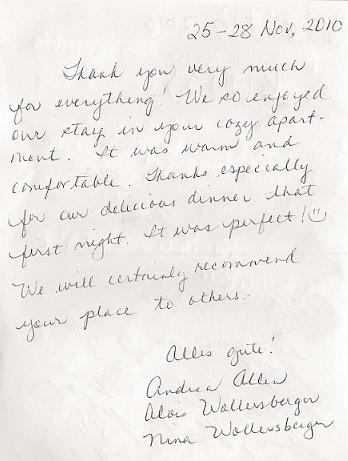 25-28 Nov, 2010
Thank you very much
for everything! We so enjoyed
our stay in your cozy apart-
ment. It was warm and
comfortable. Thanks especially
for our delicious dinner that
first night. It was perfect!
We will certainly recommend
your place to others.
Alles gute!
Andrea Allen
Alois Wollersberger
Nina Wollersberger